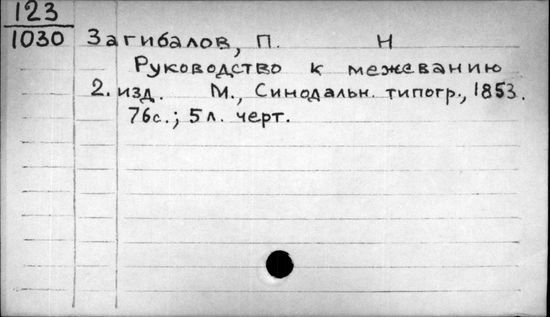 123
1030 Загибалов, П. Н
Руководство к межеванию
2. изд. М., Синодальн. типогр., 1853.
76с.; 5 л. черт.